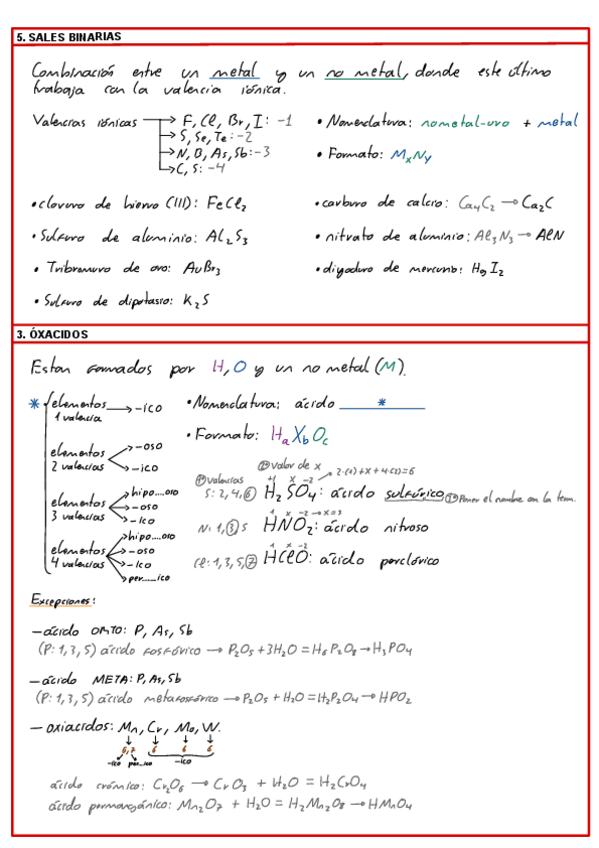 5. SALES BINARIAS
Combinación entre un metal y un no metal, donde este último
trabaja con la valencia iónica.
Valencias iónicas → F, Cl, Br, I: -1
→ S, Se, Te: -2
→ N, B, As, Sb: -3
→ C, S: -4
• Nomenclatura: nometal-uro + metal
• Formato: MxNy
• cloruro de hierro (III): FeCl₂
• Sulfuro de aluminio: Al₂S₃
• Tribromuro de oro: AuBr₃
• Sulfuro de dipotasio: K₂S
• carburo de calcio: Ca₄C₂ → Ca₂C
• nitrato de aluminio: Al₃N₃ → AlN
• diyoduro de mercurio: HgI₂
3. ÓXACIDOS
Estan formados por H, O y un no metal (M).
* elementos 1 valencia → -ico
elementos 2 valencias → -oso
→ -ico
elementos 3 valencias → hipo....oso
→ -oso
→ -ico
elementos 4 valencias → hipo....oso
→ -oso
→ -ico
→ per....ico
• Nomenclatura: ácido *
• Formato: HaXbOc
② Valor de x
2·(1)+X+4·(-2)=6
① Valencias
S: 2, 4, ⑥
+1 X -2
H₂SO₄: ácido sulfúrico ③ Poner el nombre con la term.
1 X -2 → X=3
N: 1, ③, 5 HNO₂: ácido nitroso
1 X -2
Cl: 1, 3, 5, ⑦ HClO: ácido perclórico
Excepciones:
- ácido ORTO: P, As, Sb
(P: 1, 3, 5) ácido fosfórico → P₂O₅ + 3H₂O = H₆P₂O₈ → H₃PO₄
- ácido META: P, As, Sb
(P: 1, 3, 5) ácido metafosfórico → P₂O₅ + H₂O = H₂P₂O₄ → HPO₂
- oxiacidos: Mn, Cr, Mo, W.
6, 7 6 6 6
-ico per...ico -ico
ácido crómico: Cr₂O₆ → CrO₃ + H₂O = H₂CrO₄
ácido permangánico: Mn₂O₇ + H₂O = H₂Mn₂O₈ → HMnO₄